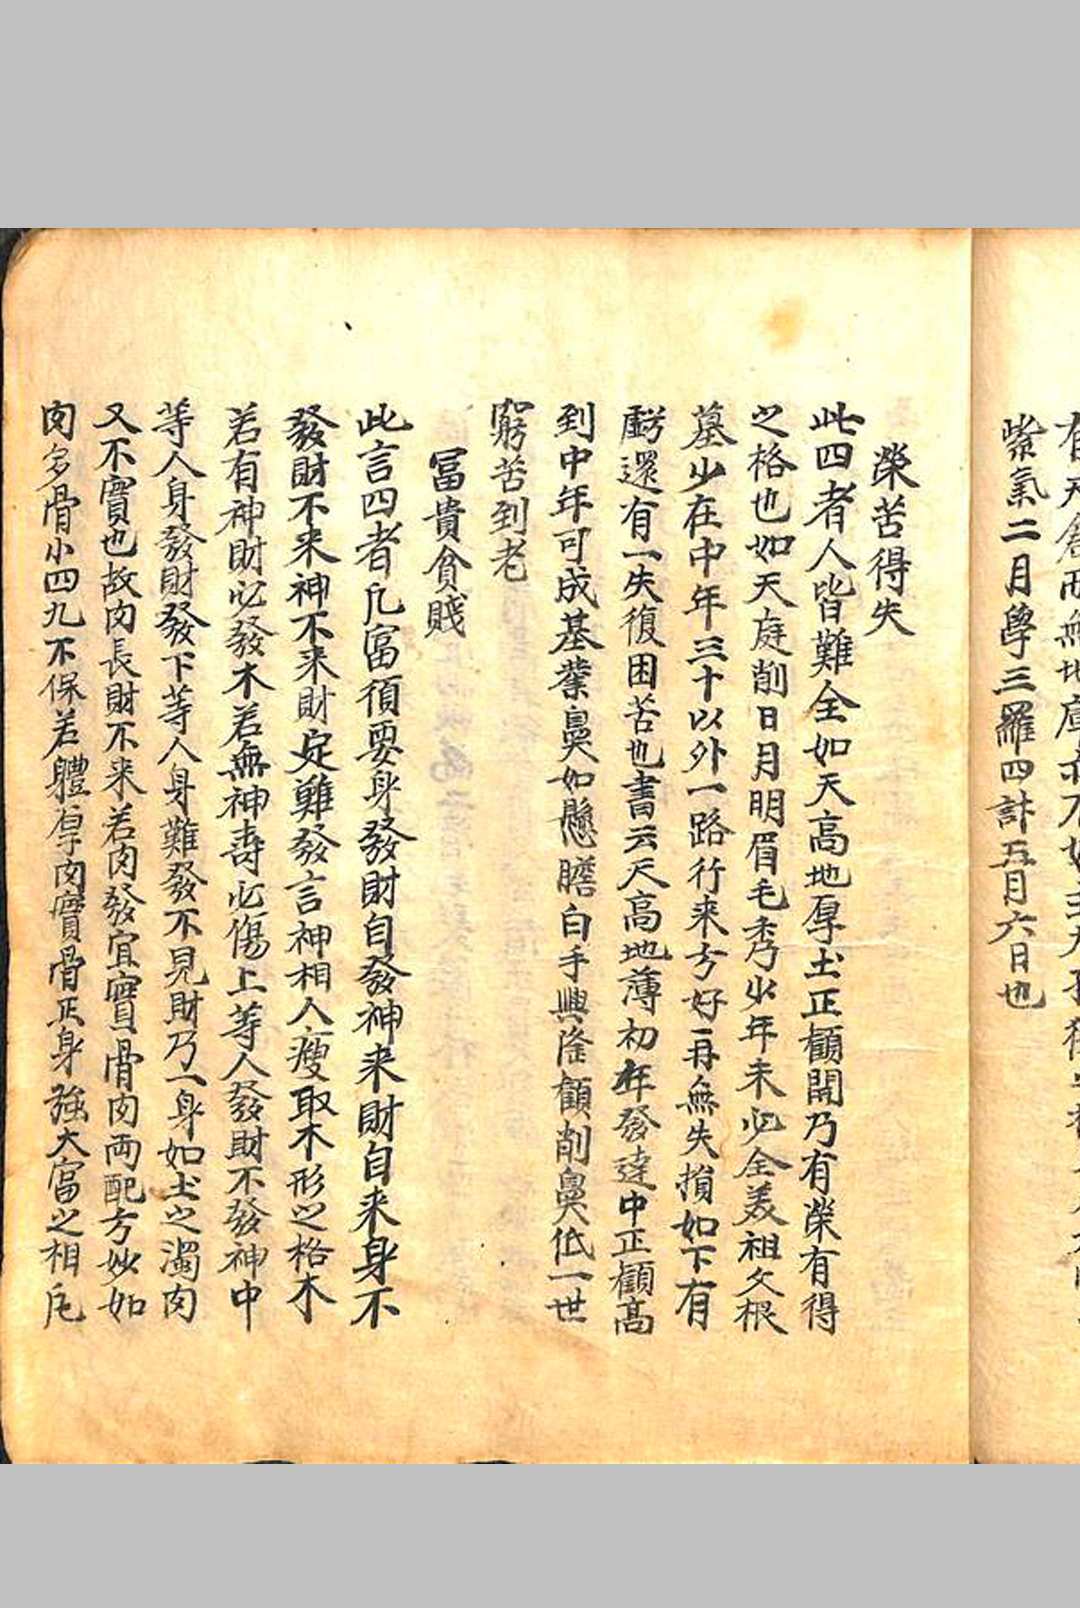 紫氣二月學三羅四計五月六日也
榮苦得失
此四者人皆難全如天高地厚土正顴開乃有榮有得
之格也如天庭削日月明眉毛秀少年未必全美祖父根
墓少在中年三十以外一路行来方好再無失損如下有
虧還有一失復困苦也書云天髙地薄初年發達中正顴髙
到中年可成基業鼻如懸膽白手興隆顴削鼻低一世
窮苦到老
冨貴貧賤
此言四者凡富須要身發財自發神来財自来身不
發財不来神不来財定難發言神相人瘦取木形之格木
若有神財必發木若無神壽必傷上等人發財不發神中
等人身發財發下等人身難發不見財乃一身如土之濁肉
又不實也故肉長財不来若肉發宜實骨肉両配方妙如
肉多骨小四九不保若體厚肉實骨正身強大富之相凡